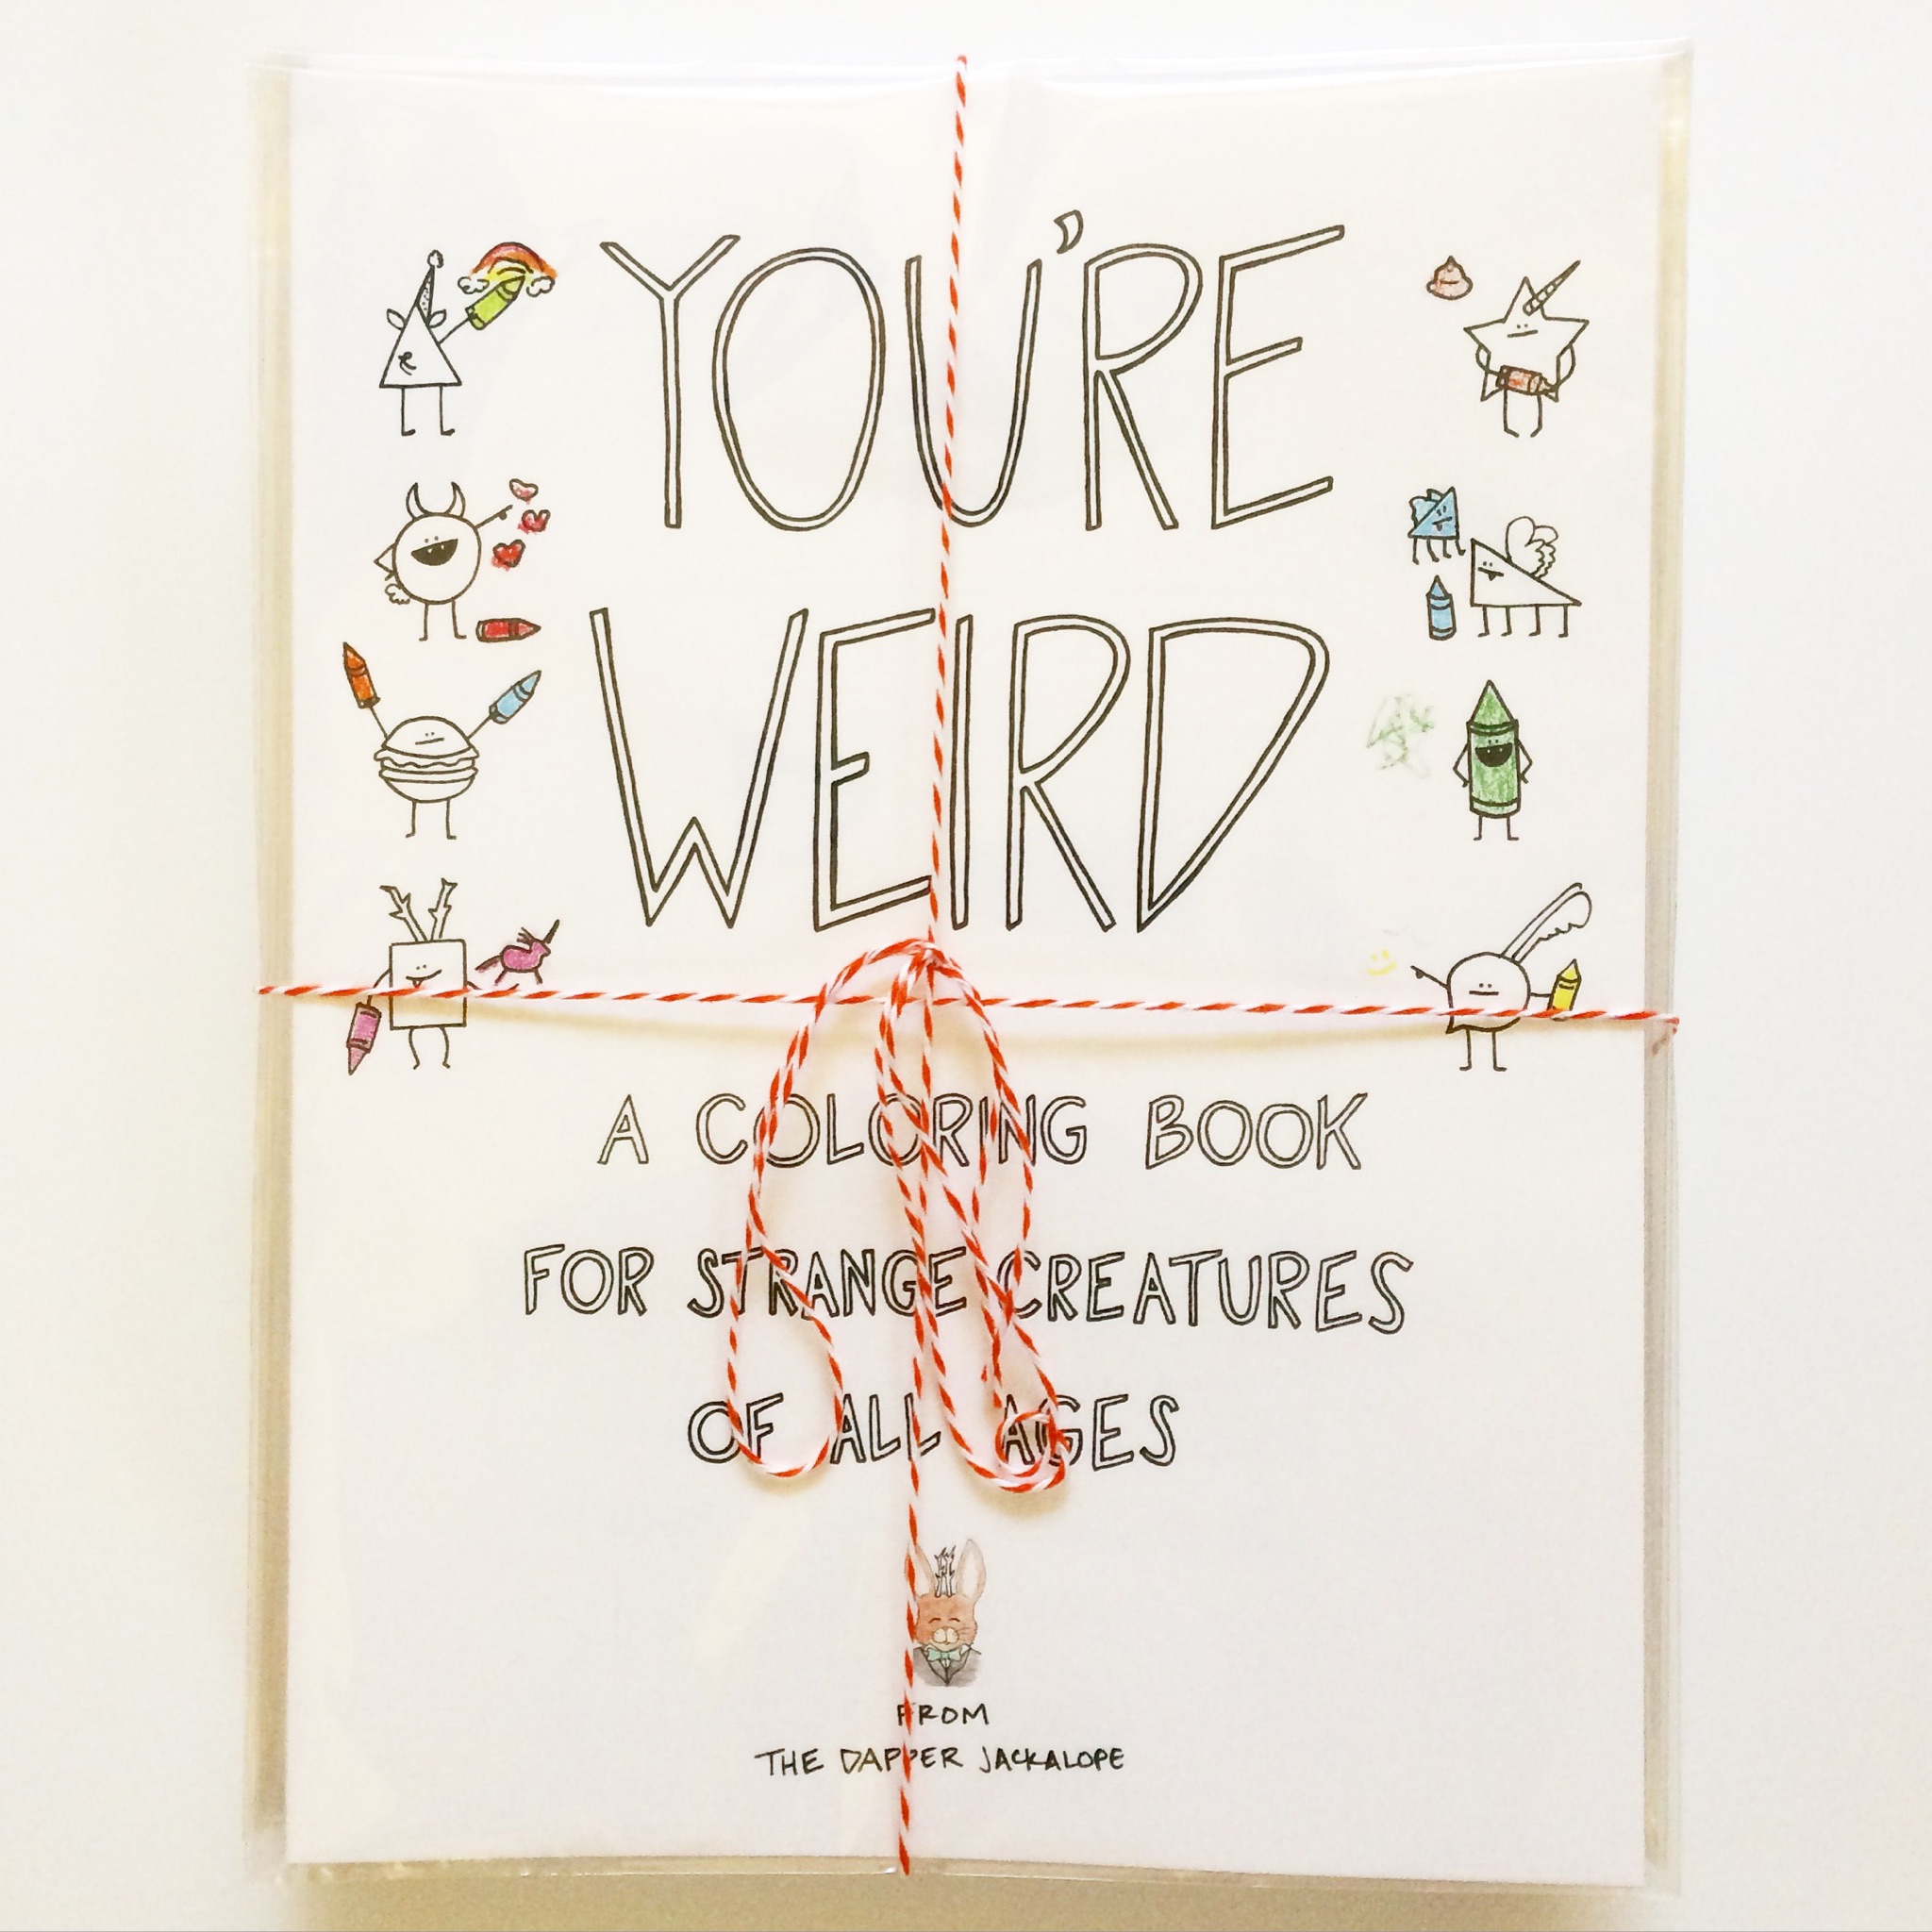 YOU'RE
WEIRD
A COLORING BOOK
FOR STRANGE CREATURES
OF ALL AGES
FROM
THE DAPPER JACKALOPE